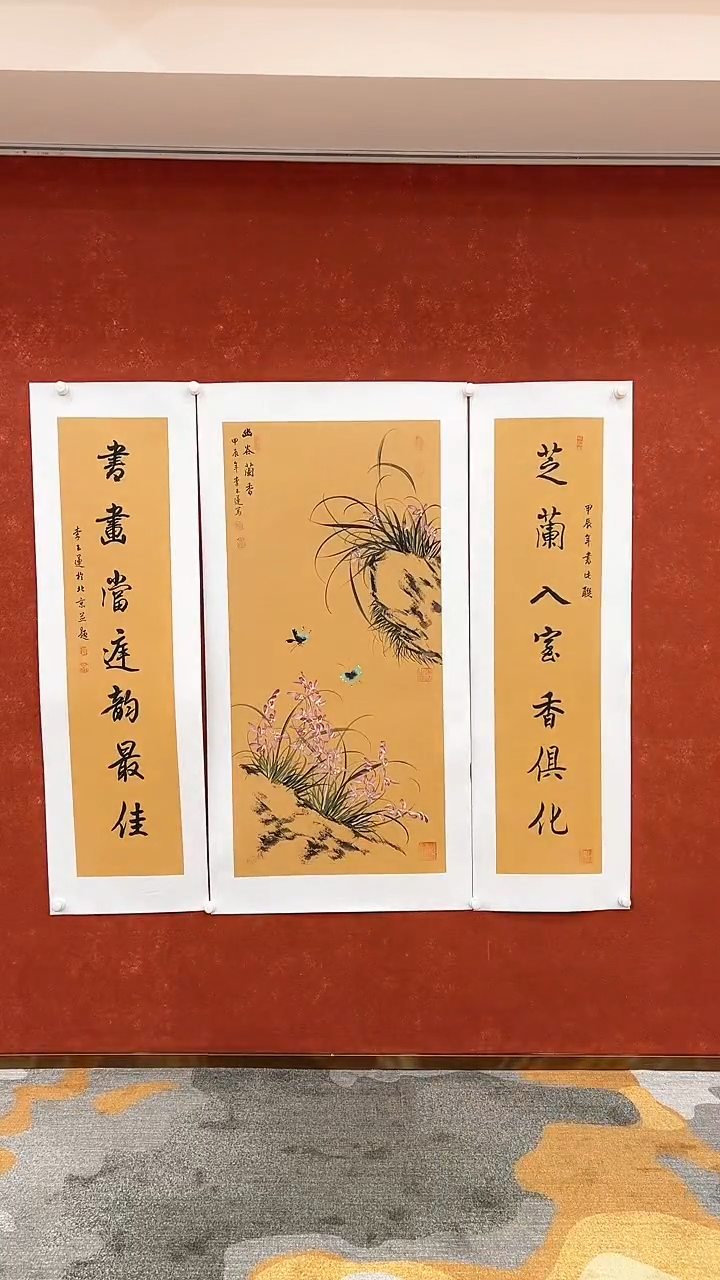 芝蘭入室香俱化
甲辰年書此聯
幽谷蘭香
甲辰年李玉蓮寫
書畫當庭韻最佳
李玉蓮於北京並題